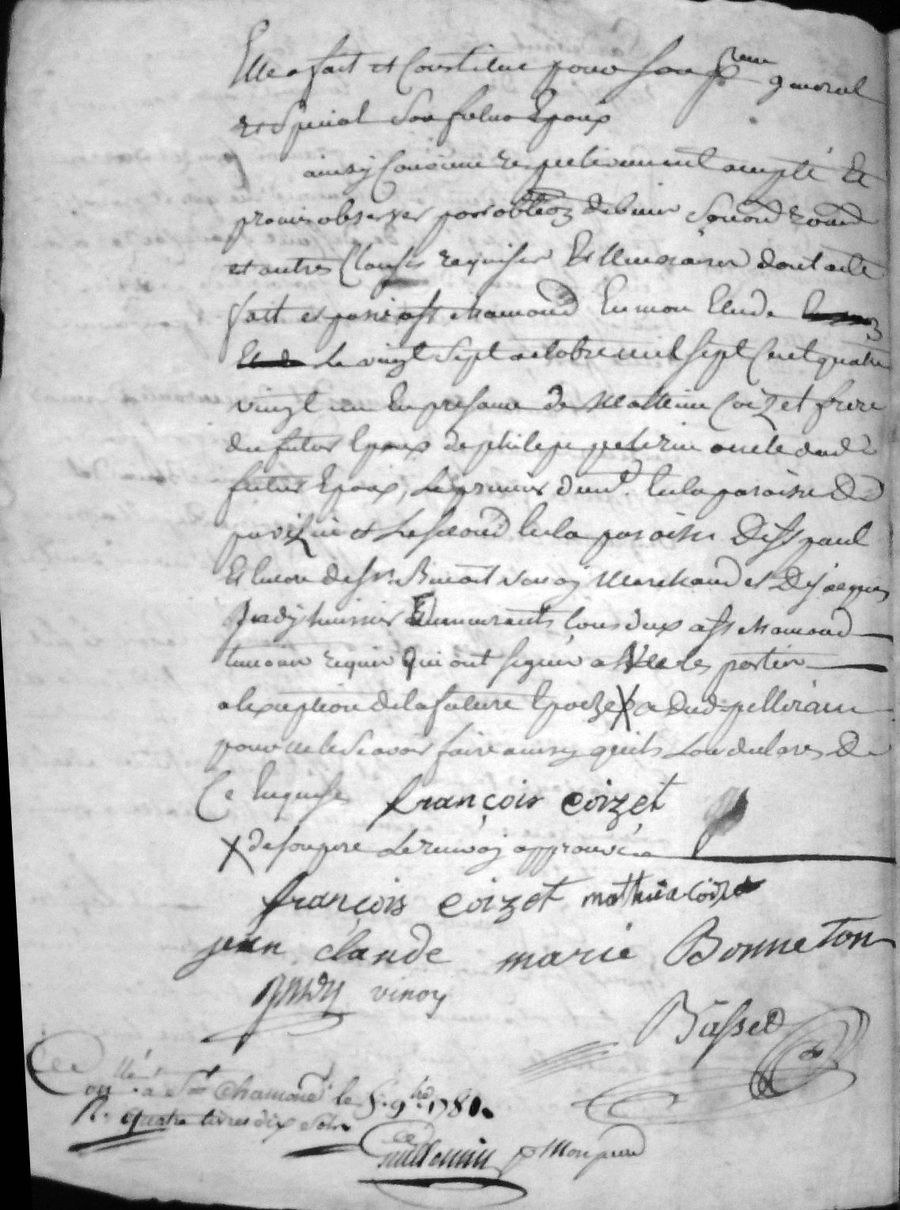 Elle a fait et Constitue pour son preur general
et special son futur Epoux
ainsy Convenu respectivement accepté Et
promis observer par oblion de biens
et autres Clauses requises Et necessaires dont acte
fait et passé a st chamond En mon Etude
Le vingt sept octobre mil sept Cent quatre
vingt un En presence de Mathieu Coizet frere
du futur Epoux de philipe pelerin oncle dud
futur Epoux, Le premier demt En la paroisse de
et Le second en la paroisse de st paul
Et encore de sr Benoit vinoy Marchand et De Sr jacques
huissier Demeurants tous deux a st chamond
temoins requis Qui ont signé avec les parties
a l'exception de la future Epouse X
pour ne le sçavoir faire ainsy qu'ils L'on declaré de
Ce Enquis françois coizet
X de son pere Le renvoy approuvé
françois coizet mathieu coizet
jean claude marie Bonneton
vinoy
Basset
llé
a St Chamond le 5. 9bre 1781.
R. quatre livres dix sols